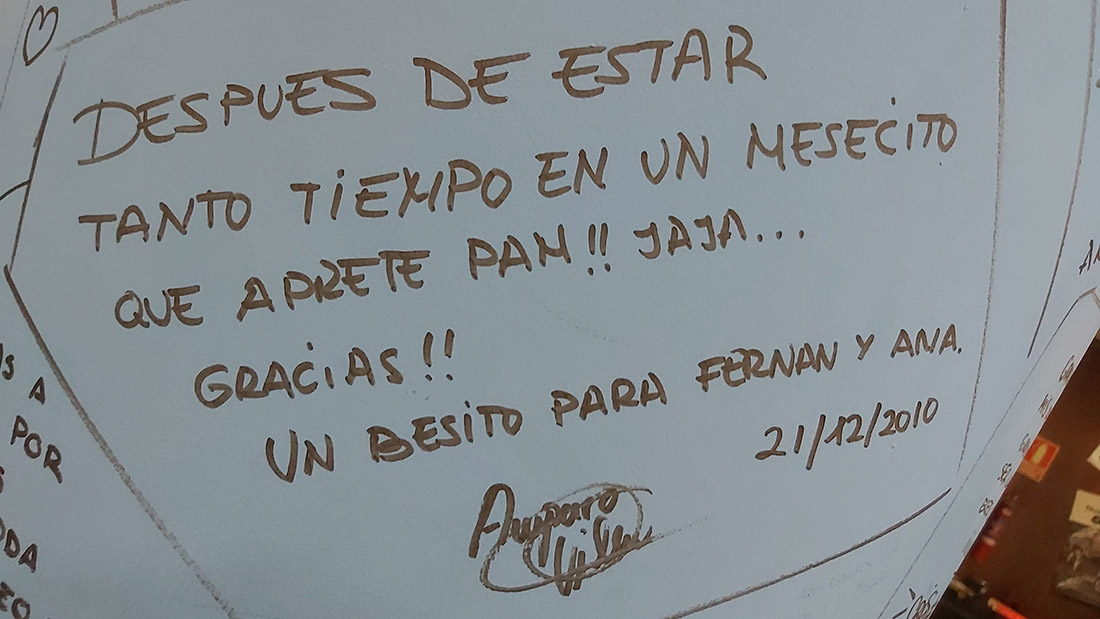 DESPUES DE ESTAR
TANTO TiEMPO EN UN MESECiTO
QUE APRETE PAM!! JAJA...
GRACiAS!!
UN BESiTO PARA FERNAN Y ANA.
21/12/2010
Amparo
S A
POR
ODA
EO